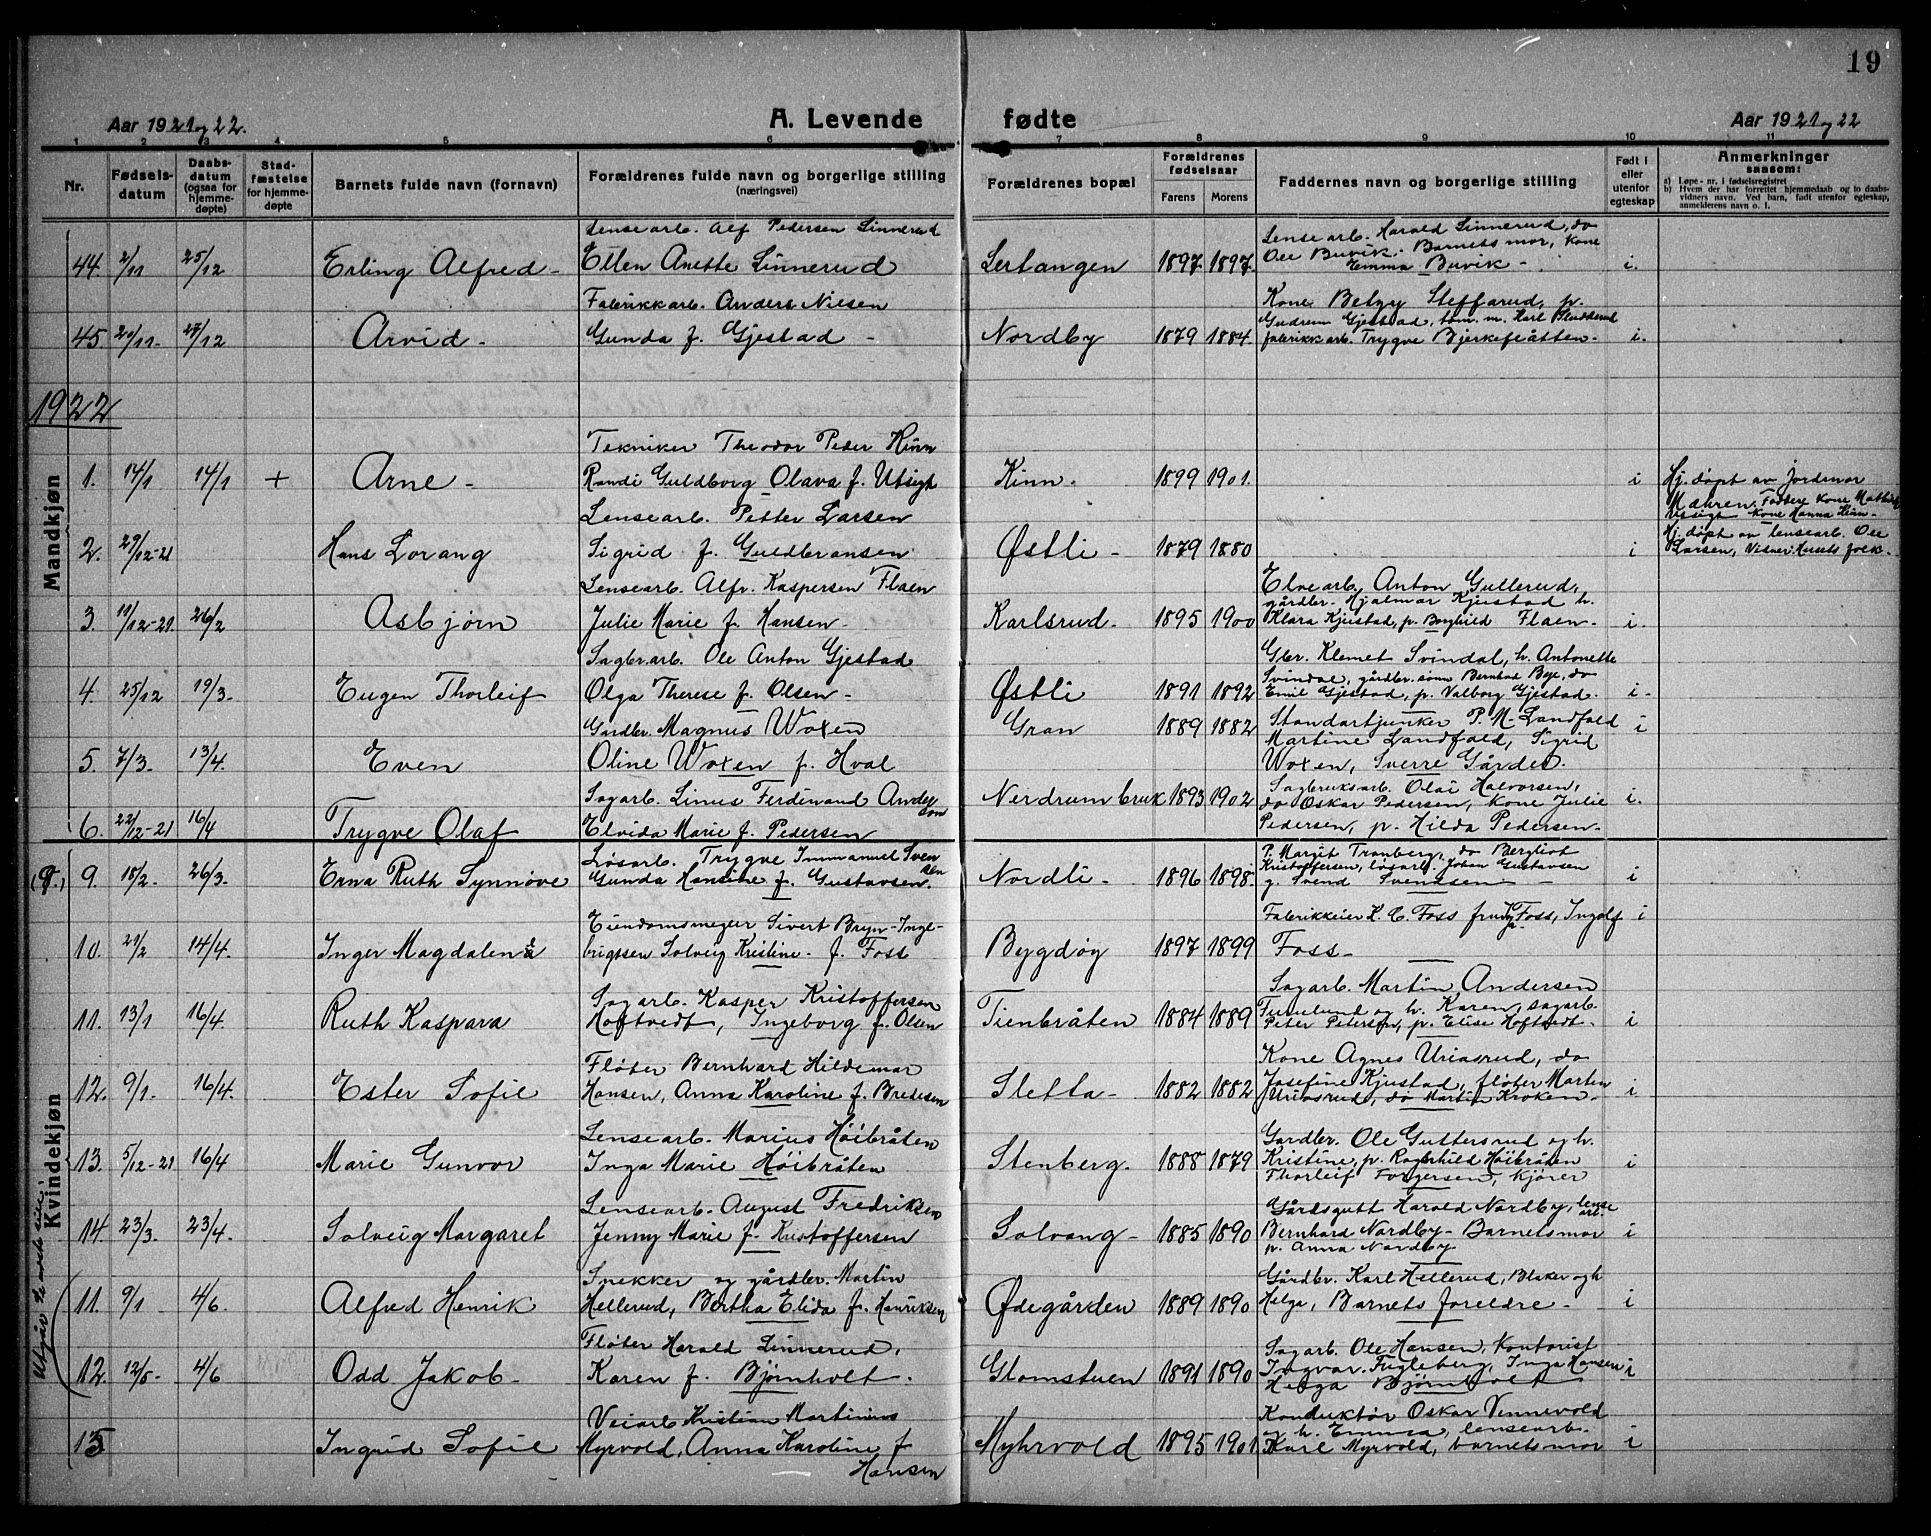 19
Aar 1921 og 22. A. Levende fødte Aar 1921 og 22
1 2 3 4 5 6 7 8 9 10 11
Nr. Fødselsdatum Daabsdatum (ogsaa for hjemmedøpte) Stadfæstelse for hjemmedøpte Barnets fulde navn (fornavn) Forældrenes fulde navn og borgerlige stilling (næringsvei) Forældrenes bopæl Forældrenes fødselsaar Farens Morens Faddernes navn og borgerlige stilling Født i eller utenfor egteskap Anmerkninger saasom:
a) Løpe-nr. i fødselsregistret
b) Hvem der har forrettet hjemmedaab og to daabsvidners navn. Ved barn, født utenfor egteskap, anmelderens navn o. l.
Lensearb. Alf Pedersen Linnerud Lensearb. Harald Linnerud, do
44. 2/11 25/12 Erling Alfred - Ellen Anette Linnerud Lertangen 1897 1897. Ole Buvik. Barnets mor, kone Emma Buvik - i.
Fabrikkarb. Anders Nilsen Kone Betzy Steffarud, p.
45 20/11- 27/12 Arvid - Gunda f. Gjestad - Nordby 1879 1884. Gudrun Gjestad, tøm. m. Karl
fabrikkarb. Trygve Bjerkeflåtten- i.
1922
Mandkjøn
Tekniker Theodor Peder Kinn
1. 14/1 14/1 + Arne - Randi Guldborg Olava f. Utsigt Kinn. 1899 1901. i Hj. døpt av jordmor
Mæhren. Faddere Kone Mathilde
Utsigt Kone Hanna Kinn-
Lensearb. Petter Larsen
2. 29/12-21 Hans Lorang Sigrid f. Guldbransen Østli - 1879 1880 i Hj. døpt av lensearb. Ole
Larsen, Vitner: Husets folk.
Lensearb. Alfr. Kaspersen Flaen Elvearb. Anton Gullerud,
gårdbr. Hjalmar Kjustad h.
3. 19/12-21. 26/2 Asbjørn Julie Marie f. Hansen- Karlsrud- 1895 1900 Klara Kjustad, p. Borghild Flaen- i.
Sagbr.arb. Ole Anton Gjestad Gbr. Klemet Svindal, h. Antonette
Svindal, gårdbr.sønn Bernhard Bye, do
4. 25/12 19/3. Eugen Thorleif Olga Therese f. Olsen- Østli 1891 1892 Emil Gjestad, p. Valborg Gjestad. i-
Gardbr. Magnus Woxen Gran 1889 1882 Standartjunker P. M. Landfald i
Martine Landfald, Sigrid
5. 7/3. 13/4. Even Oline Woxen f. Hval Woxen, Sverre Gårder.
Sagarb. Linus Ferdinand Anderson Nerdrum bruk 1893 1902 Sagbruksarb. Olai Halvorsen, i.
do Oskar Pedersen, Kone Julie
6. 22/12-21 16/4 Trygve Olaf Elvida Marie f. Pedersen Pedersen, p. Hilda Pedersen-
Kvindekjøn
Løsarb. Trygve Immanuel Svendsen P. Margit Tronberg, do Bergliot
Kristoffersen, løsarb. Johan Gustavsen
(9.) 9. 18/2. 26/3. Erna Ruth Synnøve Gunda Hansine f. Gustavsen. Nordli- 1896 1898. g. Svend Svendsen - i
Eiendomsmegler Sivert Bryn-Inge- Fabrikkeier K. C. Foss fru Foss, Ingolf i
10. 21/2 14/4. Inger Magdalena brigtsen Solveig Kristine - f. Foss Bygdøy 1897 1899 Foss-
Sagarb. Kasper Kristoffersen Sagarb. Martin Andersen
11. 13/1 16/4. Ruth Kaspara Hoftvedt, Ingeborg f. Olsen Tienbråten 1884 1889 Furulund og h. Karen, sagarb.
Peter Petersen, p. Elise Hoftvedt- i
Fløter Bernhard Hildemar Kone Agnes Uriasrud, do
12. 9/1. 16/4. Ester Sofie Hansen, Anna Karoline f. Bredesen Sletta- 1882 1882 Josefine Kjustad, fløter Marten
Uriasrud, do Martin Kroken- i
Lensearb. Marius Høibråten Gardbr. Ole Guttersrud og h.
13. 5/12-21 16/4 Marie Gunvor Inga Marie Høibråten Stenberg. 1888 1879 Kristine, p. Ragnhild Høibråten
Thorleif Torgersen, kjører i
Lensearb. August Fredriksen Gårdsgutt Harald Nordby, lensearb.
14. 23/3. 23/4. Solveig Margaret Jenny Marie f. Kristoffersen Solvang- 1885 1890 Bernhard Nordby- Barnets mor
p. Anna Nordby i
Snekker og gårdbr. Martin Gårdbr. Karl Hellerud, Blaker og h
11. 9/1 4/6. Alfred Henrik Hellerud, Bertha Elida f. Henriksen Ødegården 1889 1890 Helga, Barnets foreldre - i
Fløter Harald Linnerud, Sagarb. Ole Hansen, Kontorist
12. 12/5- 4/6 Odd Jakob- Karen f. Bjørnholt. Glomstuen 1891 1890 Ingvar Fugleberg, Inga Hansen
Helga Bjørnholt i
Veiarb Kristian Martinius Konduktør Oskar Vennevold
15 Ingrid Sofie Myrvold, Anna Karoline f Myhrvold 1895 1901. og h. Emma, lensearb.
Hansen Karl Myrvold, barnets mor i